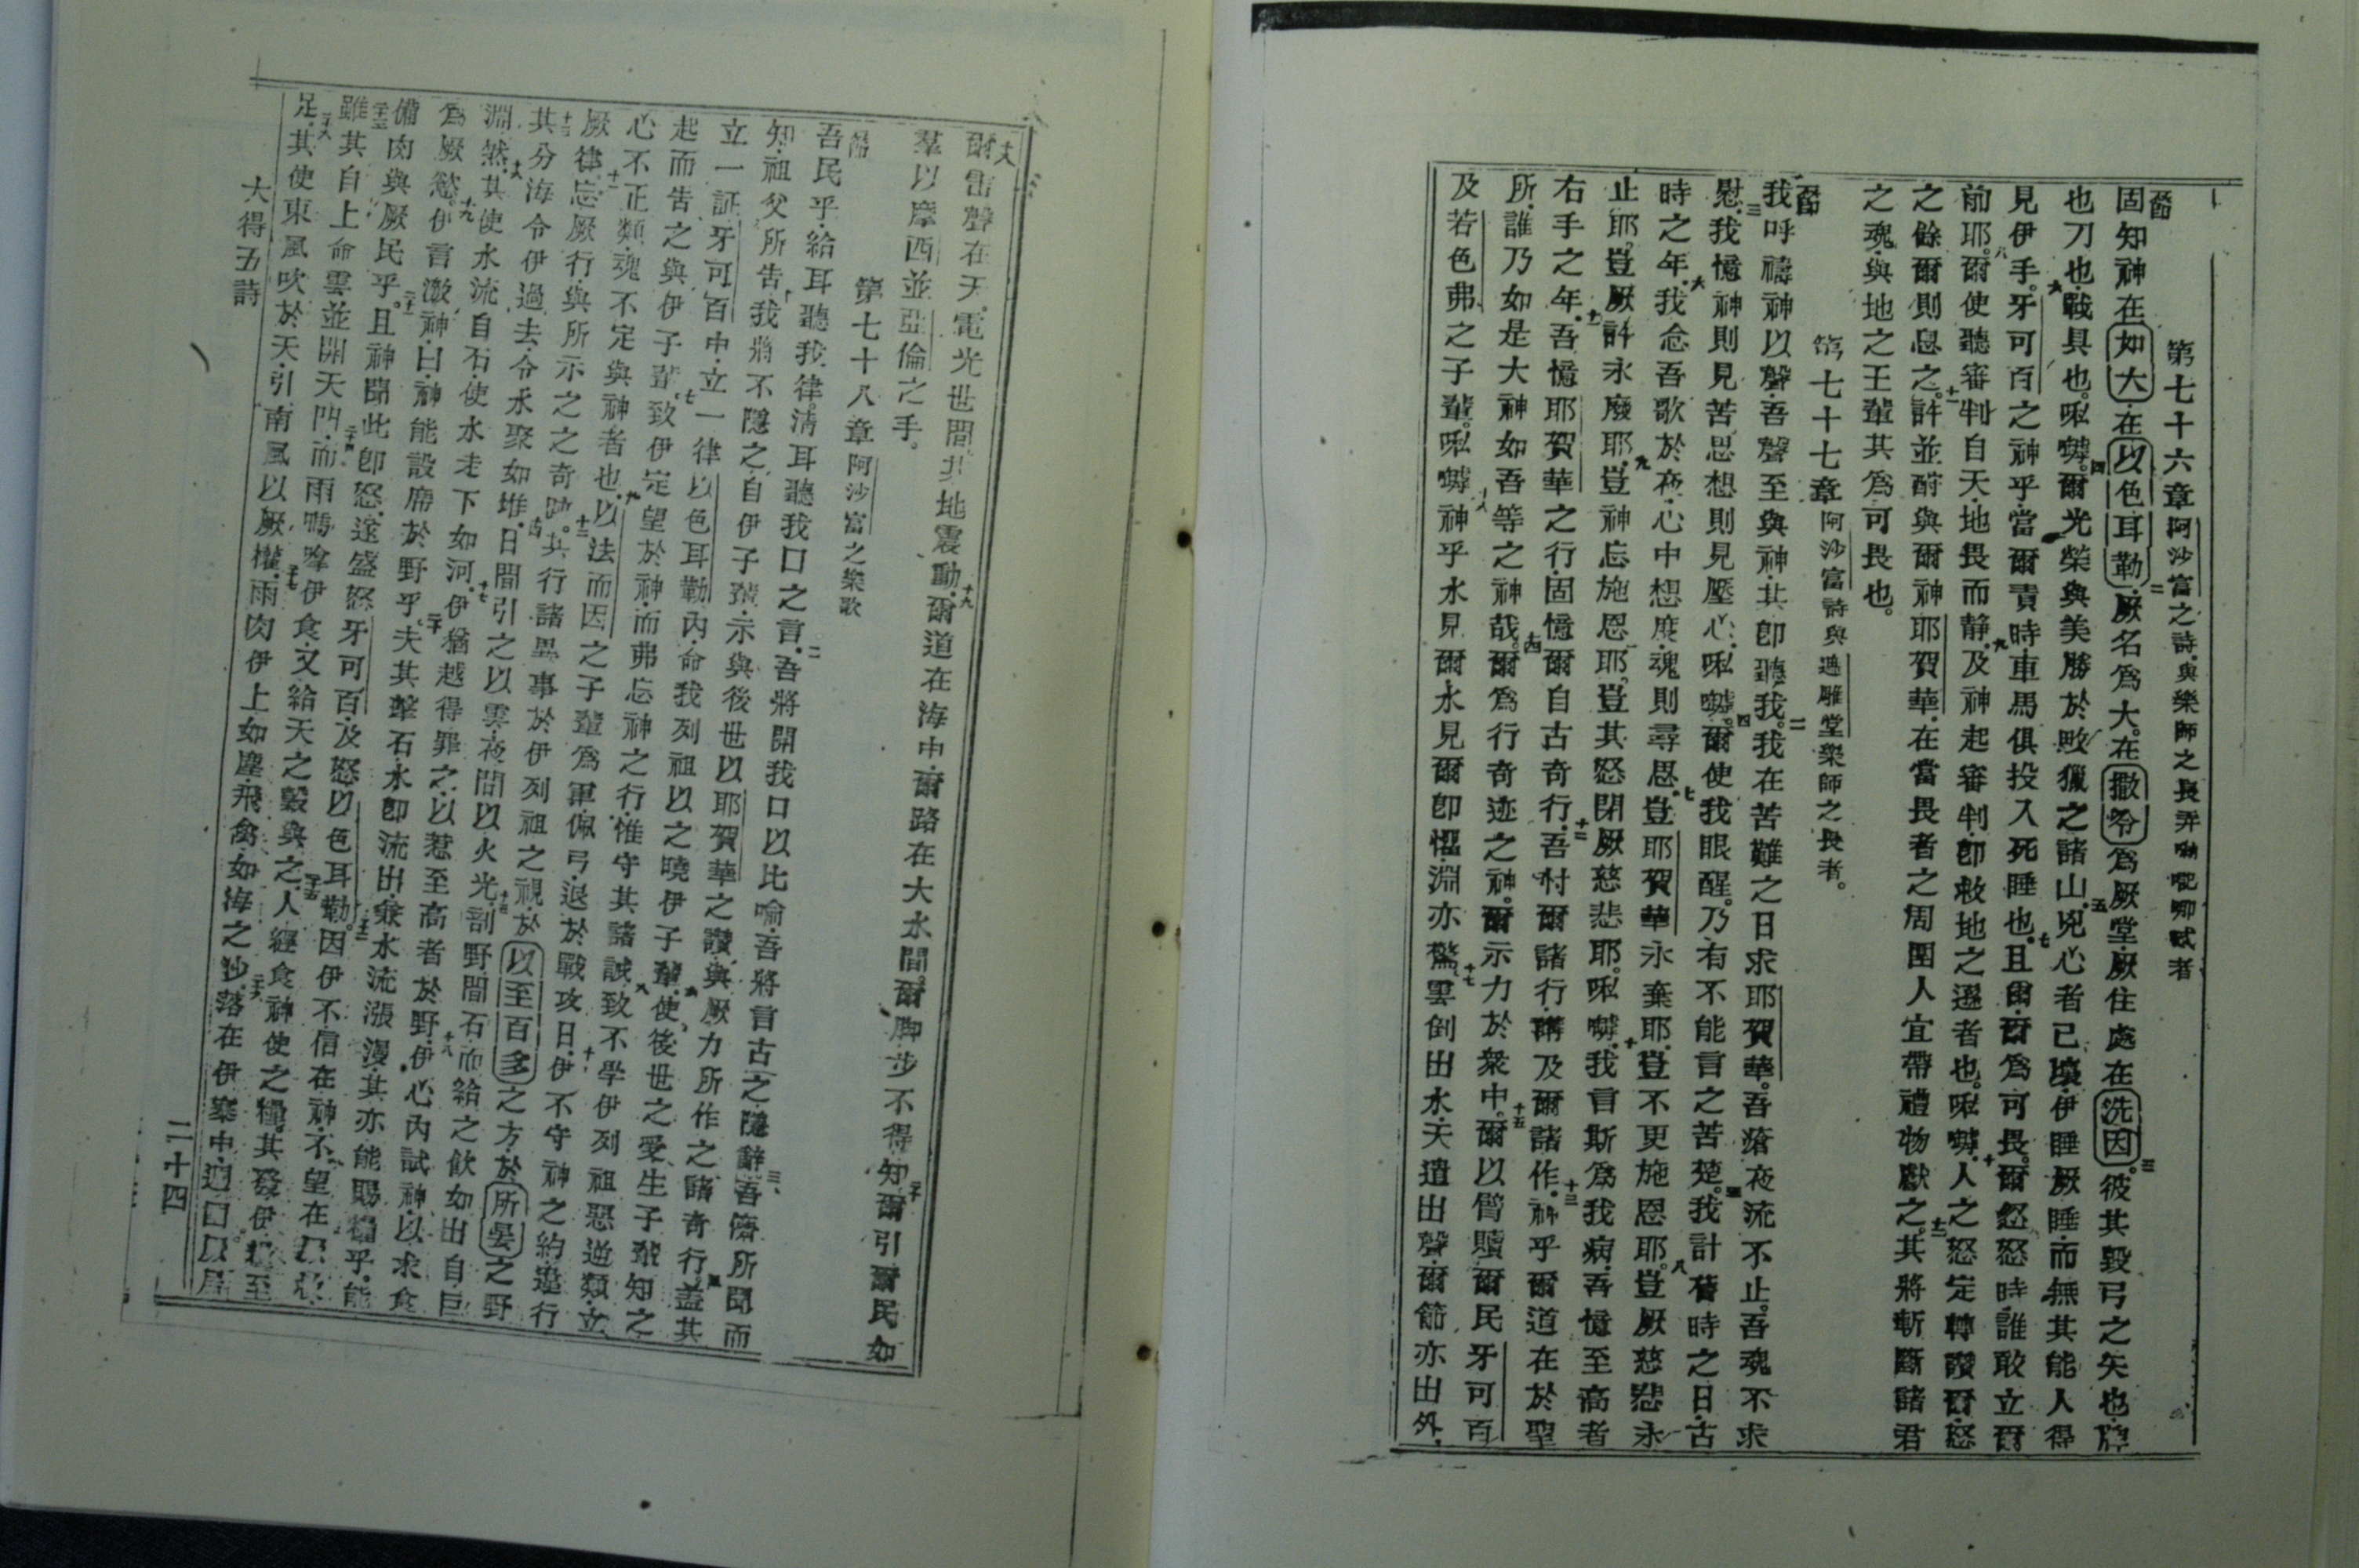 第七十六章 阿沙富之詩與樂師之長弄呢唧者
固知神在如大在以色耳勒二厥名爲大。在撒爲厥堂厥住處在洗因。三彼其毀弓之矢也牌
也刀也戰具也。㖿𡅏。四爾光榮與美勝於敗獵之諸山。五兇心者已壞伊睡厥睡而無其能人得
見伊手。六牙可百之神乎當爾責時車馬俱投入死睡也。七且爾爾爲可畏。爾怒怒時誰敢立爾
前耶。八爾使聽審判自天地畏而靜。九及神起審判卽救地之遜者也。㖿𡅏。十人之怒定轉讚爾怒
之餘爾則息之。十一許並酧與爾神耶賀華。在當畏者之周圍人宜帶禮物獻之。十二其將斬斷諸君
之魂與地之王輩其爲可畏也。
第七十七章 阿沙富詩與過雕堂樂師之長者。
我呼禱神以聲吾聲至與神其卽聽我。二我在苦難之日求耶賀華。吾瘡夜流不止。吾魂不求
慰。三我憶神則見苦思想則見壓心。㖿𡅏。四爾使我眼醒。乃有不能言之苦楚。五我計舊時之日古
時之年。六我念吾歌於夜心中想度魂則尋思。七豈耶賀華永棄耶。豈不更施恩耶。八豈厥慈悲永
止耶。豈厥許永廢耶。九豈神忘施恩耶。豈其怒閉厥慈悲耶。㖿𡅏。十我言斯爲我病吾憶至高者
右手之年。十一吾憶耶賀華之行固憶爾自古奇行。十二吾忖爾諸行講及爾諸作。十三神乎爾道在於聖
所誰乃如是大神如吾等之神哉。十四爾爲行奇迹之神。爾示力於衆中。十五爾以臂贖爾民牙可百
及若色弗之子輩。㖿𡅏十六神乎水見爾水見爾卽慍淵亦驚。十七雲倒出水天遣出聲爾箭亦出外
十八爾雷聲在天電光世間其地震動。十九爾道在海中爾路在大水間。爾脚步不得知二十爾引爾民如
羣以摩西並亞倫之手。
第七十八章 阿沙富之樂歌
吾民乎給耳聽我律。淸耳聽我口之言。二吾將開我口以比喻吾將言古之隱辭三吾儕所聞而
知祖父所告我將不隱之自伊子輩示與後世以耶賀華之讚與厥力所作之諸奇行。五蓋其
立一証牙可百中立一律以色耳勒內命我列祖以之曉伊子輩。六使後世之愛生子輩知之
起而告之與伊子輩。七致伊定望於神而弗忘神之行惟守其諸誡八致不學伊列祖惡逆類立
心不正類魂不定與神者也。九以法而因之子輩爲軍佩弓退於戰攻日。十伊不守神之約違行
厥律十一忘厥行與所示之之奇跡。十二其行諸異事於伊列祖之視於以至百多之方於所晏之野
十三其分海令伊過去令水聚如堆。十四日間引之以雲夜間以火光十五剖野間石而給之飲如出自巨
淵然。十六其使水流自石使水走下如河。十七伊猶越得罪之以惹至高者於野。十八伊心內試神以求食
爲厥慾。十九伊言激神曰神能設席於野乎。二十夫其擊石水卽流出衆水流漲漫其亦能賜糧乎能
備肉與厥民乎。二十一且神聞此卽怒遂盛怒牙可百及怒以色耳勒。二十二因伊不信在神不望在
二十三雖其自上命雲並開天門二十四而雨嗎嗱伊食又給天之穀與之。二十五人經食神使之糧。其發伊至
足。二十六其使東風吹於天引南風以厥權二十七雨肉伊上如塵飛禽如海之沙二十八落在伊寨中週
大得五詩
二十四